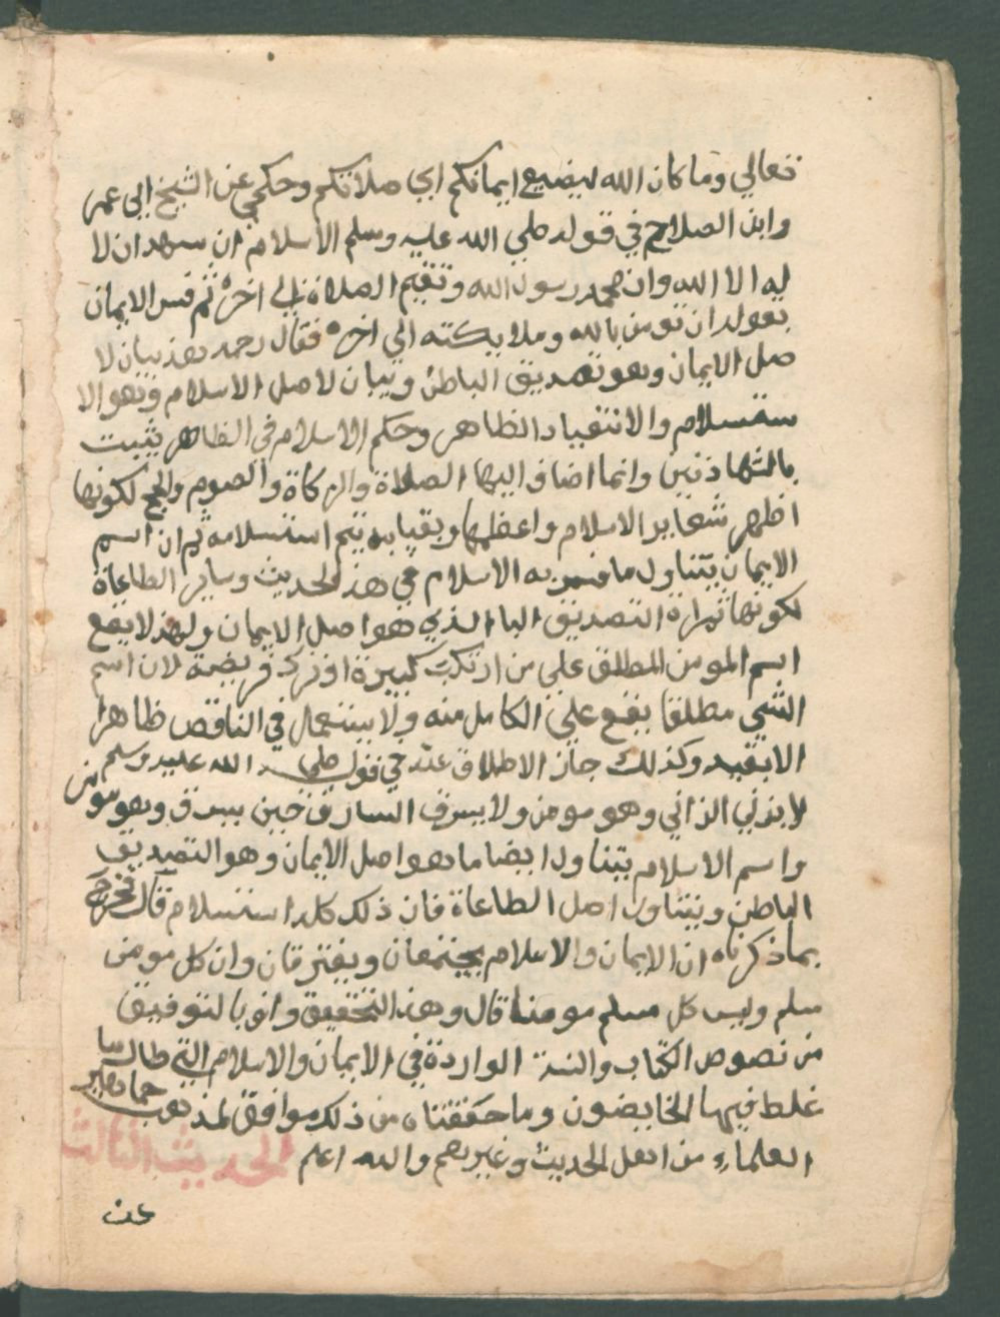 تعالي وما كان الله ليضيع ايمانكم اي صلاتكم وحكي عن الشيخ ابي عمر
وابن الصلاح في قوله صلي الله عليه وسلم الاسلام ان تشهد ان لا
اله الا الله وان محمد رسول الله وتقيم الصلاة الي اخره ثم فسر الايمان
بقوله ان تومن بالله وملايكته الي اخره فقال رحمه هذ بيان لا
صل الايمان وهو تصديق الباطن وبيان لاصل الاسلام وهو الا
ستسلام والانقياد الظاهر وحكم الاسلام في الظاهر يثبت
بالشهادتين وانما اضاف اليها الصلاة والزكاة والصوم والحج لكونها
اظهر شعاير الاسلام واعظمها وبقيامه يتم استسلامه ثم ان اسم
الايمان يتناول ما فسر به الاسلام في هذ الحديث وساير الطاعاة
لكونها ثمراة التصديق البا الذي هو اصل الايمان ولهذ لا يقع
اسم المومن المطلق علي من ارتكب كبيرة او ترك فريضة لان اسم
الشي مطلقا يقع علي الكامل منه ولا يستعمل في الناقص ظاهرا
الا بقيد وكذلك جاز الاطلاق عنه في قوله صلي الله عليه وسلم
لا يزني الزاني وهو مومن ولا يسرق السارق حين يسرق وهو مومن
واسم الاسلام يتناول ايضا ما هو اصل الايمان وهو التصديق
الباطن ويتناول اصل الطاعاة فان ذلك كله استسلام قال فخرج
بما ذكرناه ان الايمان والاسلام يجتمعان ويفترقان وان كل مومن
مسلم وليس كل مسلم مومنا قال وهذ التحقيق واف بالتوفيق
من نصوص الكتاب والسنة الواردة في الايمان والاسلام التي طال ما
غلط فيها الخايضون وما حققناه من ذلك موافق لمذهب جماهير
العلماء من اهل الحديث وغيرهم والله اعلم الحديث الثالث
عن